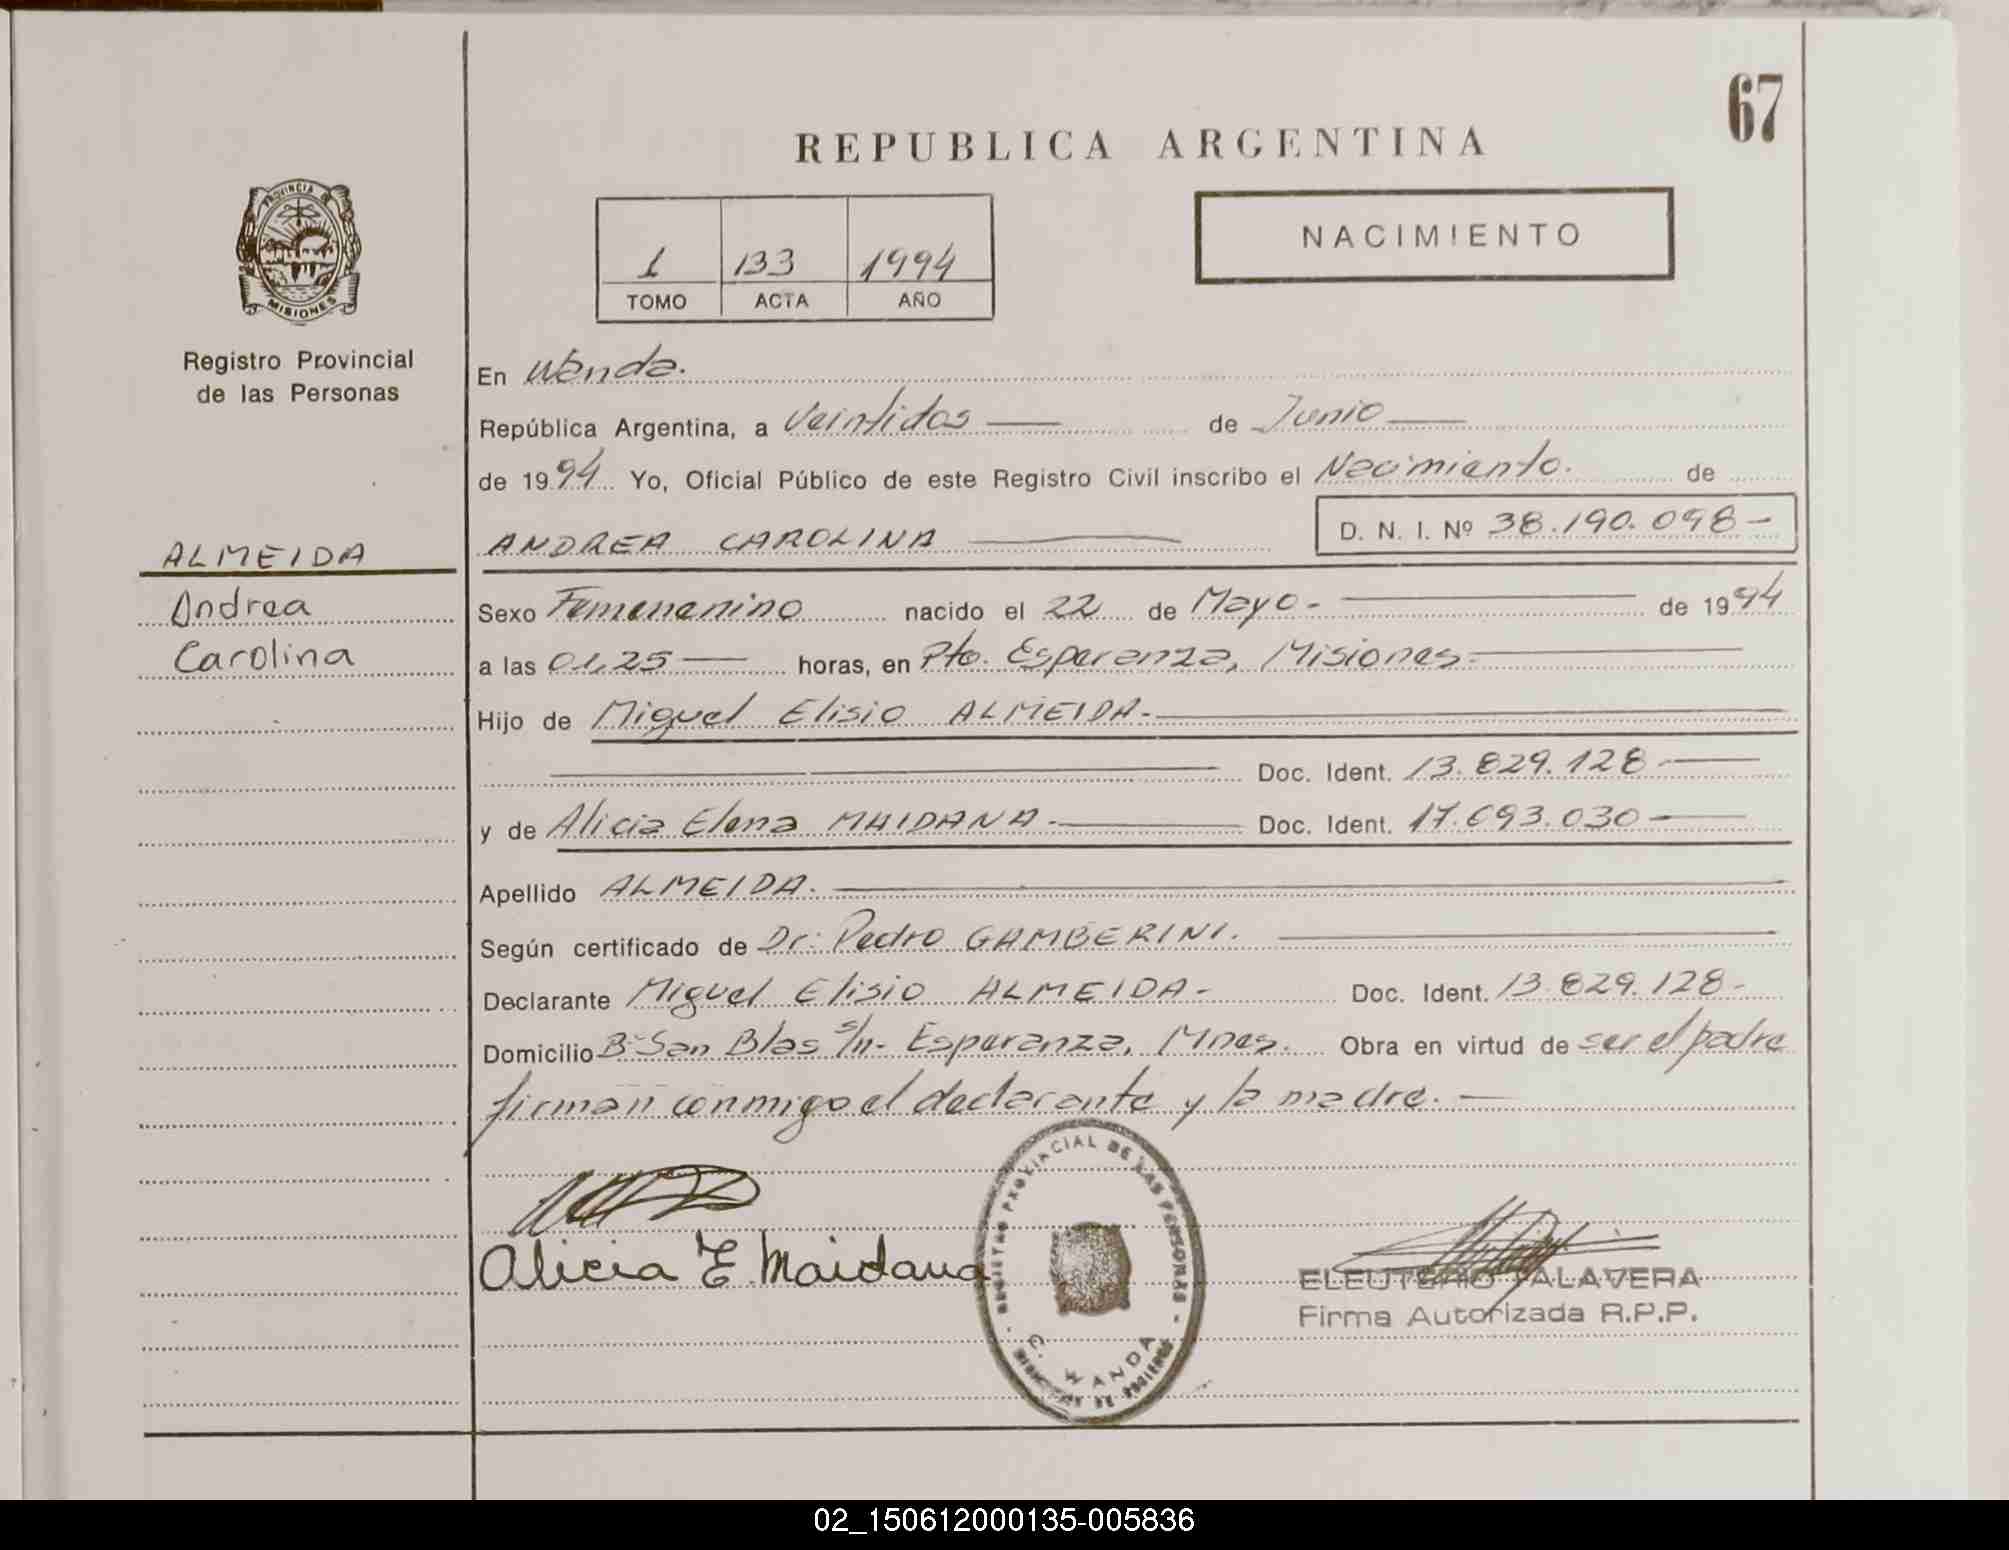 67
REPUBLICA ARGENTINA
PROVINCIA DE MISIONES
Registro Provincial
de las Personas
1 133 1994
TOMO ACTA AÑO
NACIMIENTO
En Wanda.
República Argentina, a Veintidos de Junio
de 1994 Yo, Oficial Público de este Registro Civil inscribo el Nacimiento. de
ANDREA CAROLINA D. N. I. Nº 38.190.098-
ALMEIDA
Andrea
Carolina
Sexo Femenenino nacido el 22 de Mayo- de 1994
a las 01,25 horas, en Pto. Esperanza, Misiones-
Hijo de Miguel Elisio ALMEIDA-
Doc. Ident. 13.829.128-
y de Alicia Elena MAIDANA- Doc. Ident. 17.693.030-
Apellido ALMEIDA.
Según certificado de Dr: Pedro GAMBERINI.
Declarante Miguel Elisio ALMEIDA- Doc. Ident. 13.829.128-
Domicilio Bº San Blas s/n- Esperanza, Mnes. Obra en virtud de ser el padre
firman conmigo el declarante y la madre.-
Alicia E Maidana
REGISTRO PROVINCIAL DE LAS PERSONAS
WANDA
ELEUTERIO TALAVERA
Firma Autorizada R.P.P.
02_150612000135-005836